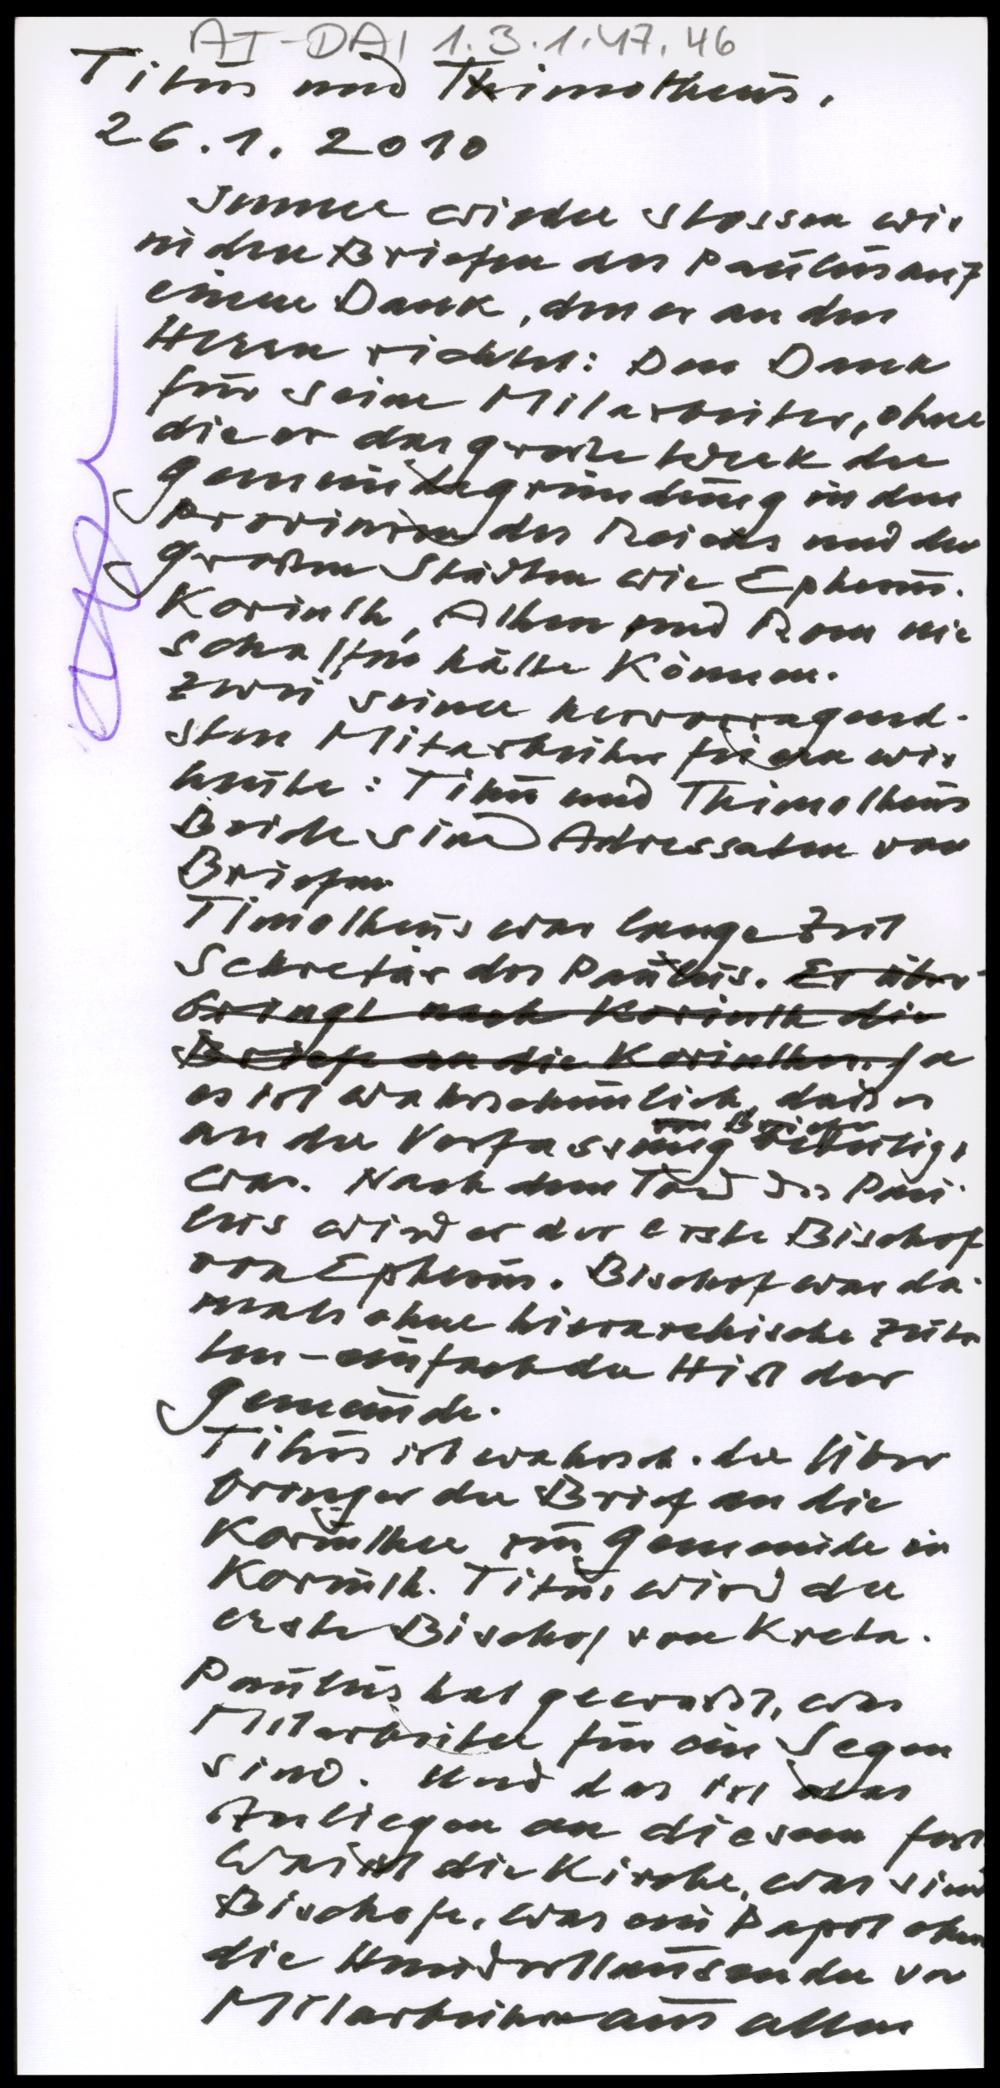 AT-DAI 1.3.1.47.46
Titus und Thimotheus,
26.1.2010
Immer wieder stossen wir
in den Briefen des Paulus auf
einen Dank, den er an den
Herrn richtet: Den Dank
für seine Mitarbeiter, ohne
die er das große Werk der
Gemeindegründung in den
Provinzen des Reichs und den
großen Städten wie Ephesus.
Korinth, Athen und Rom nie
schaffen hätte können.
Zwei seiner hervorragend-
sten Mitarbeiter feiern wir
heute: Titus und Thimotheus
Beide sind Adressaten von
Briefen
Timotheus war lange Zeit
Sekretär des Paulus. Er über-
bringt nach Korinth die
Briefe an die Korinther. Ja
es ist wahrscheinlich, daß er
an der Verfassung von Briefen beteiligt
war. Nach dem Tod des Pau-
lus wird er der erste Bischof
von Ephesus. Bischof war da-
mals ohne hierarchische Zuta
ten - einfach der Hirt der
Gemeinde.
Titus ist wahrsch. der Über
bringer der Brief an die
Korinther zur Gemeinde in
Korinth. Titus wird der
erste Bischof von Kreta.
Paulus hat gewußt, was
Mitarbeiter für ein Segen
sind. Und das ist das
Anliegen an diesem Fest
Was ist die Kirche, was sind
Bischofe, was ein Papst ohne
die Hunderttausende von
Mitarbeitern aus allen